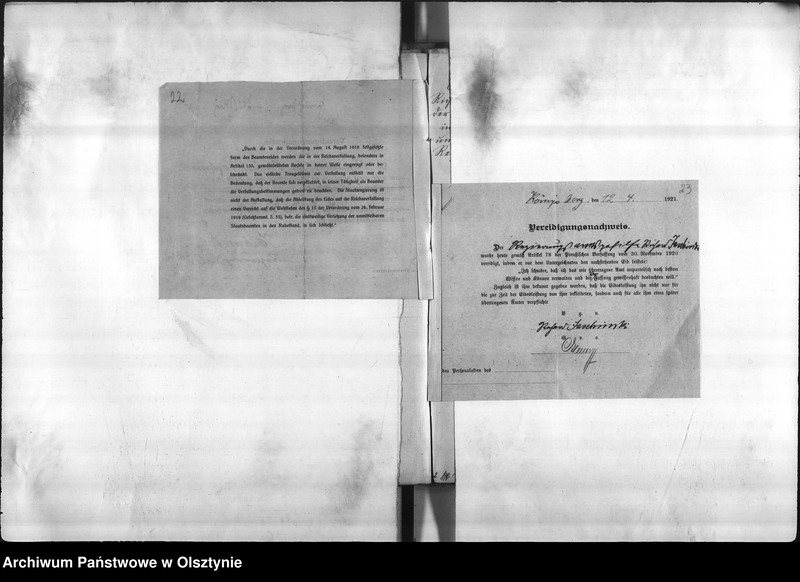 22
„Durch die in der Verordnung vom 14. August 1919 festgesetzte
Form des Beamteneides werden die in der Reichsverfassung, besonders in
Artikel 130, gewährleisteten Rechte in keiner Weise eingeengt oder be-
schränkt. Das eidliche Treugelöbnis zur Verfassung enthält nur die
Bedeutung, daß der Beamte sich verpflichtet, in seiner Tätigkeit als Beamter
die Verfassungsbestimmungen getreu zu beachten. Die Staatsregierung ist
nicht der Auffassung, daß die Ableistung des Eides auf die Reichsverfassung
einen Verzicht auf die Wohltaten des § 15 der Verordnung vom 26. Februar
1919 (Gesetzsamml. S. 33), betr. die einstweilige Versetzung der unmittelbaren
Staatsbeamten in den Ruhestand, in sich schließt.“
23
Königsberg, den 22. 4. 1921.
Vereidigungsnachweis.
Der Regierungs
wurde heute gemäß Artikel 78 der Preußischen Verfassung vom 30. November 1920
vereidigt, indem er vor dem Unterzeichneten den nachstehenden Eid leistete:
„Ich schwöre, daß ich das mir übertragene Amt unparteiisch nach bestem
Wissen und Können verwalten und die Verfassung gewissenhaft beobachten will.“
Zugleich ist ihm bekannt gegeben worden, daß die Eidesleistung ihn nicht nur für
die zur Zeit der Eidesleistung von ihm bekleideten, sondern auch für alle ihm etwa später
übertragenen Ämter verpflichte
den Personalakten des
Archiwum Państwowe w Olsztynie